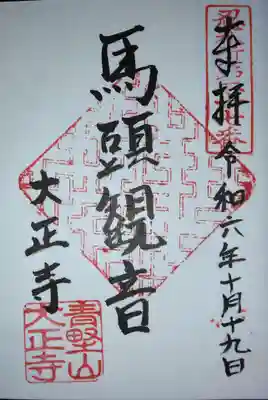 奉拝
令和六年十月十九日
馬頭観音
大正寺
青野山
大正寺